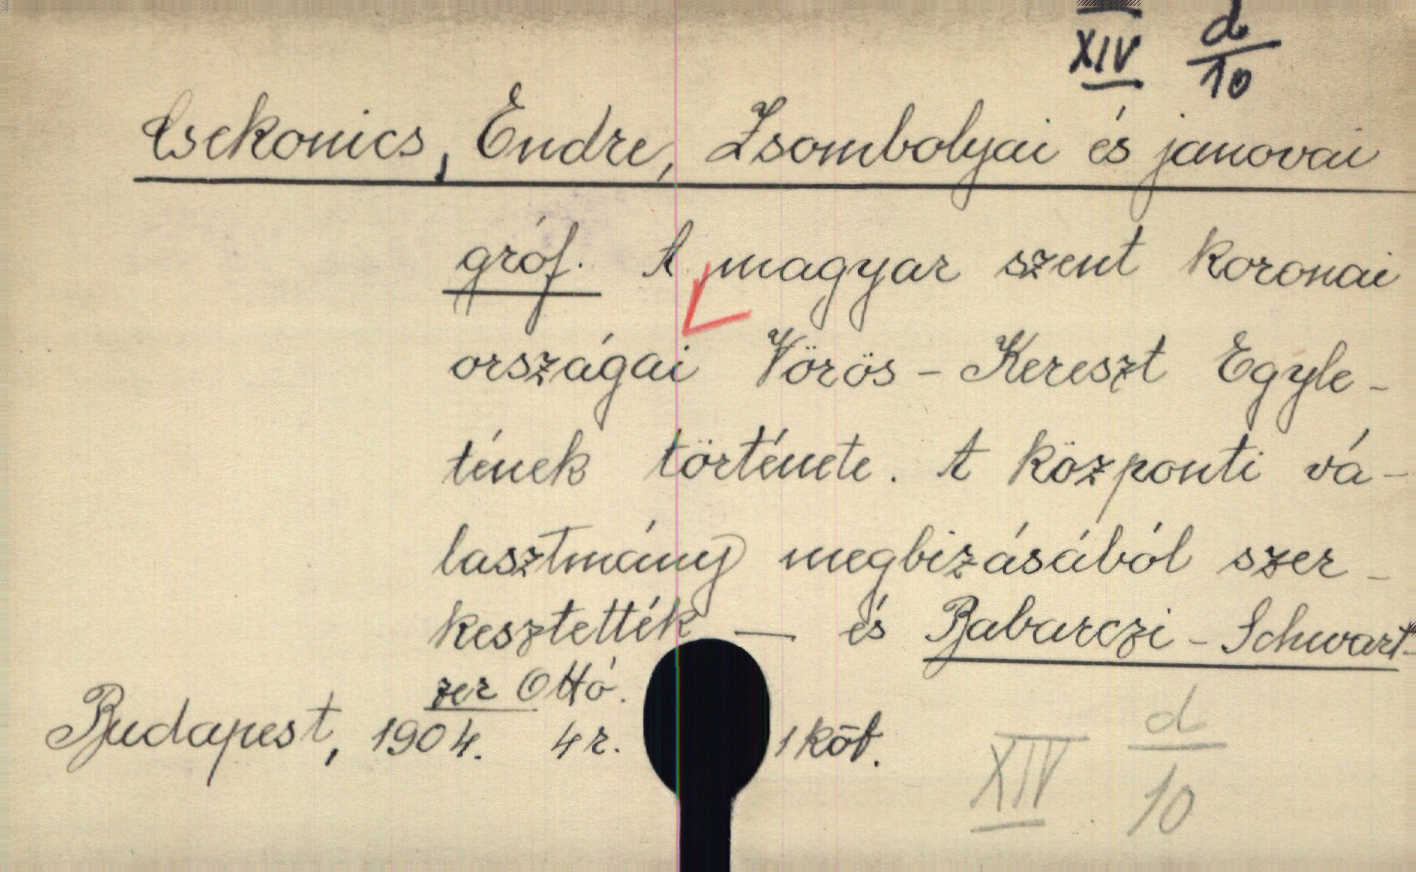 XIV d/10
Csekonics, Endre, Zsombolyai és janovai
gróf. A magyar szent koronai
országai Vörös-Kereszt Egyle-
tének története. A központi vá-
lasztmány megbizásából szer-
kesztették — és Babarczi-Schwart-
zer Ottó.
Budapest, 1904. 4r. 1 köt.
XIV d/10